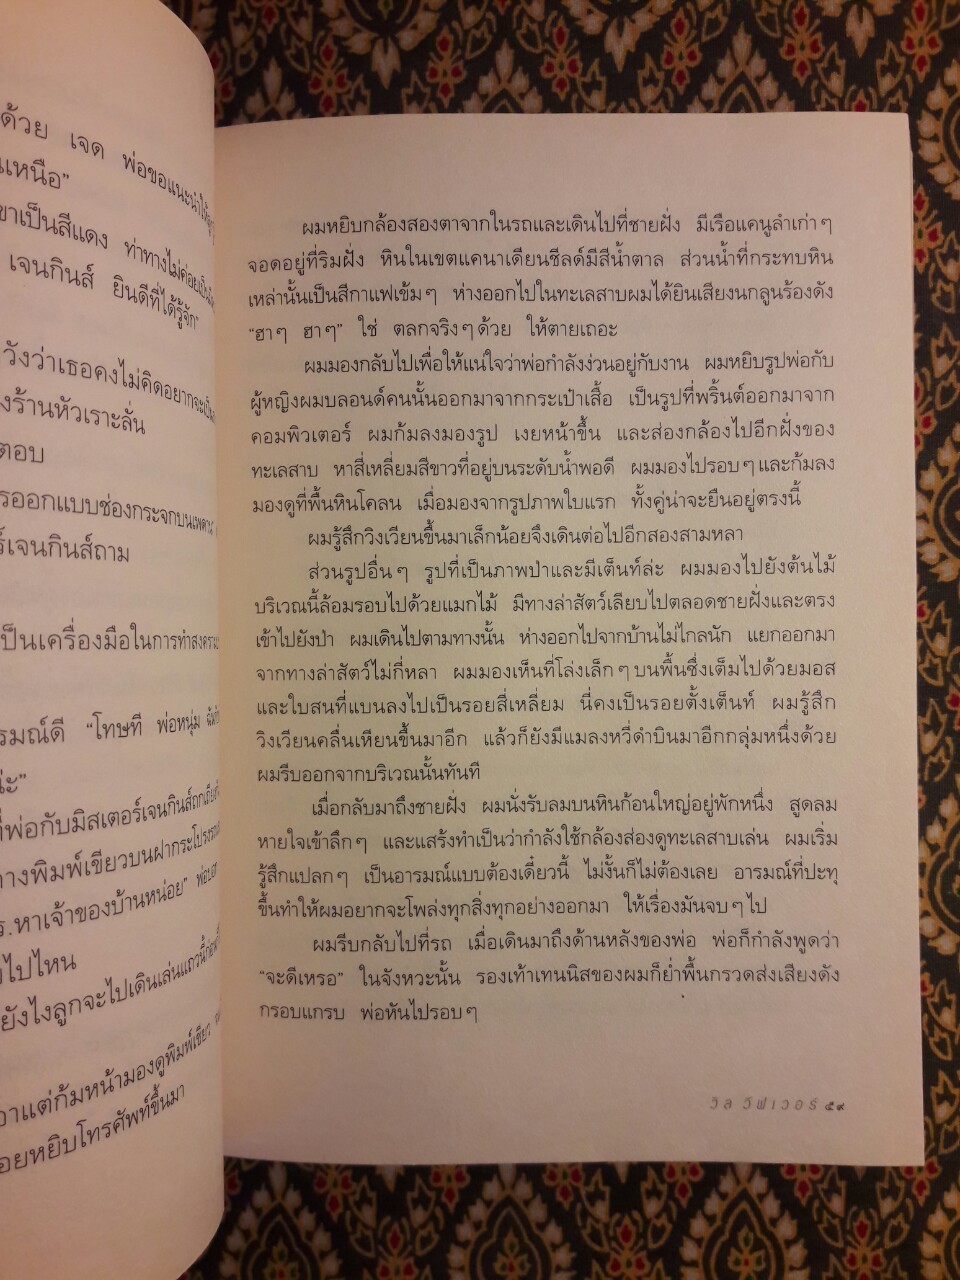 ด้วย เจด พ่อขอแนะนำให้
นเหนือ”
ขาเป็นสีแดง ท่าทางไม่ค่อยเป็น
เจนกินส์ ยินดีที่ได้รู้จัก”
วังว่าเธอคงไม่คิดอยากจะเป็น
งร้านหัวเราะลั่น
ตอบ
รออกแบบช่องกระจกบนเพดาน
ร์เจนกินส์ถาม
เป็นเครื่องมือในการทำสงคราม
รมณ์ดี “โทษที พ่อหนุ่ม
น่ะ”
ที่พ่อกับมิสเตอร์เจนกินส์ถกเถียง
างพิมพ์เขียวบนฝากระโปรงรถ
ร.หาเจ้าของบ้านหน่อย” พ่อบอก
ไปไหน
ยังไงลูกจะไปเดินเล่นแถวนี้ก่อน
อาแต่ก้มหน้ามองดูพิมพ์เขียว
อยหยิบโทรศัพท์ขึ้นมา
ผมหยิบกล้องสองตาจากในรถและเดินไปที่ชายฝั่ง มีเรือแคนูลำเก่าๆ
จอดอยู่ที่ริมฝั่ง หินในเขตแคนาเดียนชีลด์มีสีน้ำตาล ส่วนน้ำที่กระทบหิน
เหล่านั้นเป็นสีกาแฟเข้มๆ ห่างออกไปในทะเลสาบผมได้ยินเสียงนกลูนร้องดัง
“ฮาๆ ฮาๆ” ใช่ ตลกจริงๆด้วย ให้ตายเถอะ
ผมมองกลับไปเพื่อให้แน่ใจว่าพ่อกำลังง่วนอยู่กับงาน ผมหยิบรูปพ่อกับ
ผู้หญิงผมบลอนด์คนนั้นออกมาจากกระเป๋าเสื้อ เป็นรูปที่พริ้นต์ออกมาจาก
คอมพิวเตอร์ ผมก้มลงมองรูป เงยหน้าขึ้น และส่องกล้องไปอีกฝั่งของ
ทะเลสาบ หาสี่เหลี่ยมสีขาวที่อยู่บนระดับน้ำพอดี ผมมองไปรอบๆและก้มลง
มองดูที่พื้นหินโคลน เมื่อมองจากรูปภาพใบแรก ทั้งคู่น่าจะยืนอยู่ตรงนี้
ผมรู้สึกวิงเวียนขึ้นมาเล็กน้อยจึงเดินต่อไปอีกสองสามหลา
ส่วนรูปอื่นๆ รูปที่เป็นภาพป่าและมีเต็นท์ล่ะ ผมมองไปยังต้นไม้
บริเวณนี้ล้อมรอบไปด้วยแมกไม้ มีทางล่าสัตว์เลียบไปตลอดชายฝั่งและตรง
เข้าไปยังป่า ผมเดินไปตามทางนั้น ห่างออกไปจากบ้านไม่ไกลนัก แยกออกมา
จากทางล่าสัตว์ไม่กี่หลา ผมมองเห็นที่โล่งเล็กๆบนพื้นซึ่งเต็มไปด้วยมอส
และใบสนที่แบนลงไปเป็นรอยสี่เหลี่ยม นี่คงเป็นรอยตั้งเต็นท์ ผมรู้สึก
วิงเวียนคลื่นเหียนขึ้นมาอีก แล้วก็ยังมีแมลงหวี่ดำบินมาอีกกลุ่มหนึ่งด้วย
ผมรีบออกจากบริเวณนั้นทันที
เมื่อกลับมาถึงชายฝั่ง ผมนั่งรับลมบนหินก้อนใหญ่อยู่พักหนึ่ง สูดลม
หายใจเข้าลึกๆ และแสร้งทำเป็นว่ากำลังใช้กล้องส่องดูทะเลสาบเล่น ผมเริ่ม
รู้สึกแปลกๆ เป็นอารมณ์แบบต้องเดี๋ยวนี้ ไม่งั้นก็ไม่ต้องเลย อารมณ์ที่ปะทุ
ขึ้นทำให้ผมอยากจะโพล่งทุกสิ่งทุกอย่างออกมา ให้เรื่องมันจบๆไป
ผมรีบกลับไปที่รถ เมื่อเดินมาถึงด้านหลังของพ่อ พ่อก็กำลังพูดว่า
“จะดีเหรอ” ในจังหวะนั้น รองเท้าเทนนิสของผมก็ย่ำพื้นกรวดส่งเสียงดัง
กรอบแกรบ พ่อหันไปรอบๆ
วิล วีฟเวอร์ ๕๙